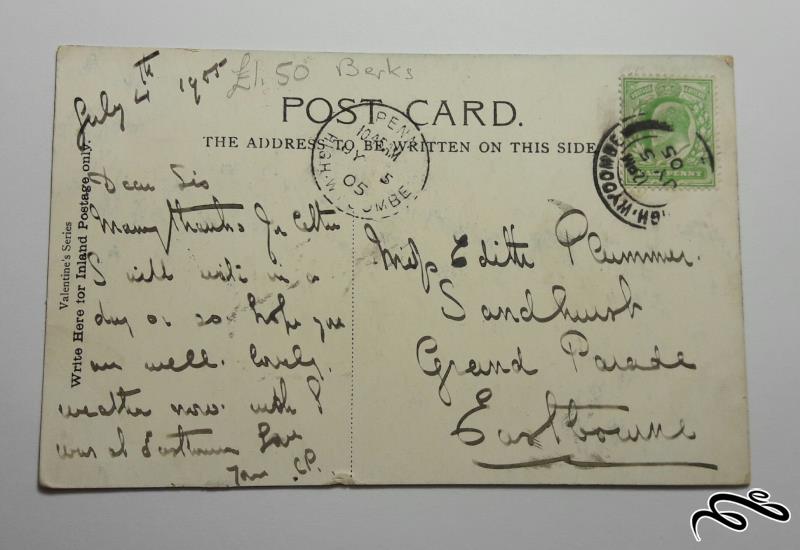 July 4th 1905
£1.50 Berks
POST CARD.
THE ADDRESS TO BE WRITTEN ON THIS SIDE
Valentine's Series
Write Here for Inland Postage only.
PENN
10.45AM
JY 5
05
HIGH WYCOMBE
HIGH WYCOMBE
PM
JY 5
05
HALFPENNY
Dear Sis
Many thanks for letter
I will write in a
day or so hope you
are well. lovely
weather now. wish I
was at Eastbourne Love
Your C.P.
Miss Edith Plummer.
Sandhurst
Grand Parade
Eastbourne